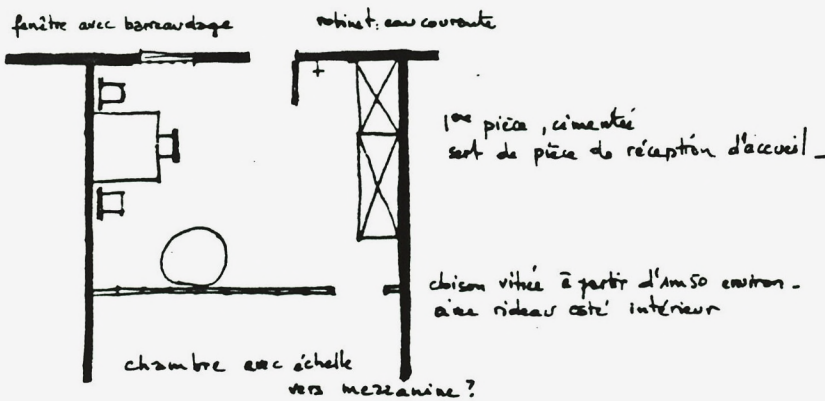 fenêtre avec barreaudage
robinet: eau courante
1ère pièce, cimentée
sert de pièce de réception d'accueil_
cloison vitrée à partir d'1m50 environ-
avec rideau côté intérieur
chambre avec échelle
vers mezzanine?